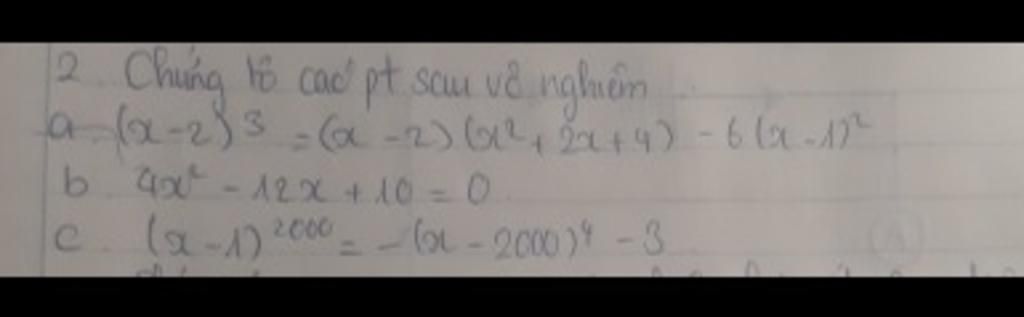 2. Chứng tỏ các pt sau vô nghiệm
a. (x-2)³ = (x-2)(x²+2x+4) - 6(x-1)²
b 4x² - 12x + 10 = 0
c. (x-1)²⁰⁰⁰ = -(x-2000)⁴ - 3